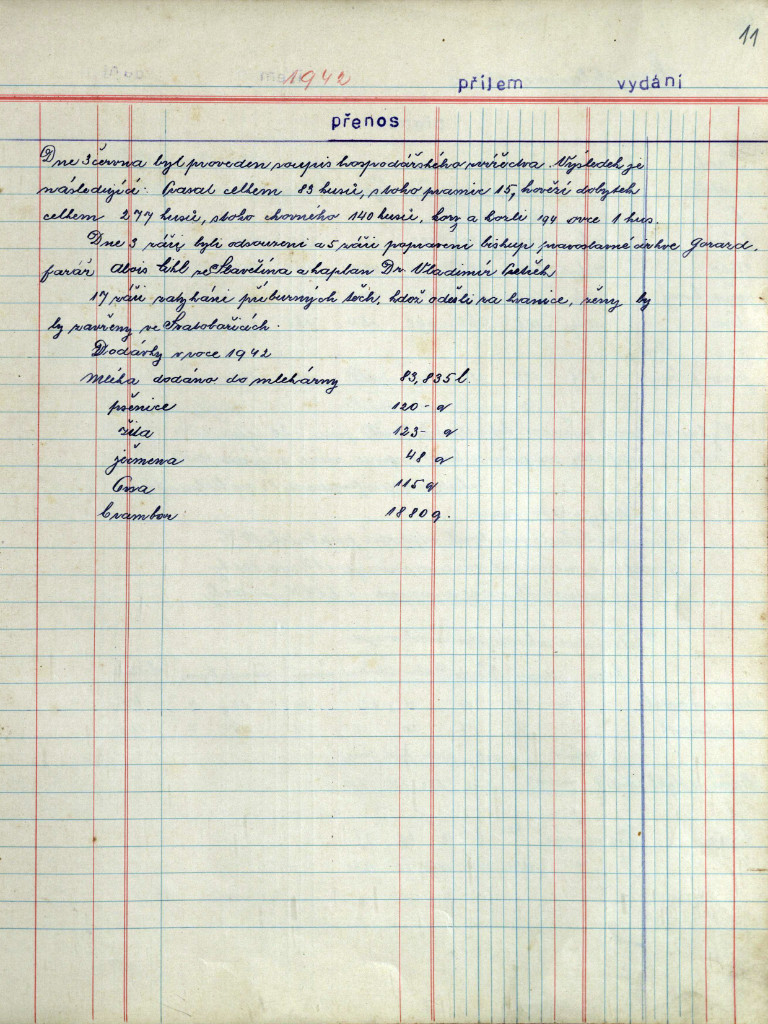 11
1942
příjem vydání
přenos
Dne 3 června byl proveden soupis hospodářského zvířectva. Výsledek je
následující: Prasat celkem 83 kusů, z toho prasnic 15, hovězí dobytek
celkem 277 kusů, z toho chovného 140 kusů, kozy a kozli 194 ovce 1 kus.
Dne 3 září byli odsouzeni a 5 září popraveni biskup pravoslavné církve Gorazd,
farář Alois ze Slavětína a kaplan Dr. Vladimír Petřek
17 září zatýkáni příbuzných těch, kdož odešli za hranice, ženy by
ly zavřeny ve Svatobořicích.
Dodávky v roce 1942
Mléka dodáno do mlékárny 83,835 l.
pšenice 120 - q
žita 123 - q
ječmena 48 q
Ovsa 115 q
brambor 1880 q.